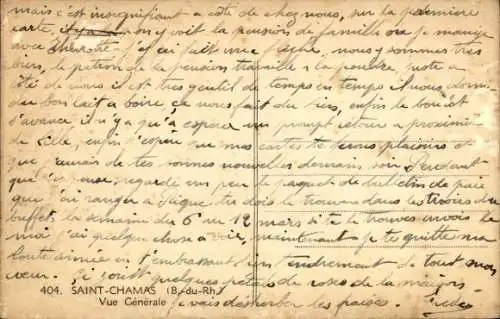 mais c'est insignifiant a côté de chez nous, sur la première
carte, on y voit la pension de famille ou je mange
avec j'y ai fait une nous y sommes tres
bien, le patron de la pension travaille a la poudre juste a
côté de nous il est tres gentil de temps en temps il nous donne
du bon lait a boire, ça nous fait du bien, enfin le bon est
s'avance il n'y a qu'a espérer un prompt retour a proximité
de Lille, enfin j'espère que mes cartes te feront plaisirs et
que j'aurais de tes bonnes nouvelles demain soir Pendant
que j'y pense, regarde un peu le paquet de bulletins de paie
que j'ai ranger a tu dois le trouver dans les tiroirs du
buffet, la semaine du 6 au 12 mars si te le trouves envois le
moi j'ai quelque chose a voir, maintenant je te quitte ma
toute aimée en t'embrassant bien tendrement de tout mon
cœur. Ci joint quelques pétales de roses de la maison
404. SAINT-CHAMAS (B.-du-Rh.)
Vue Générale
je vais désherber les